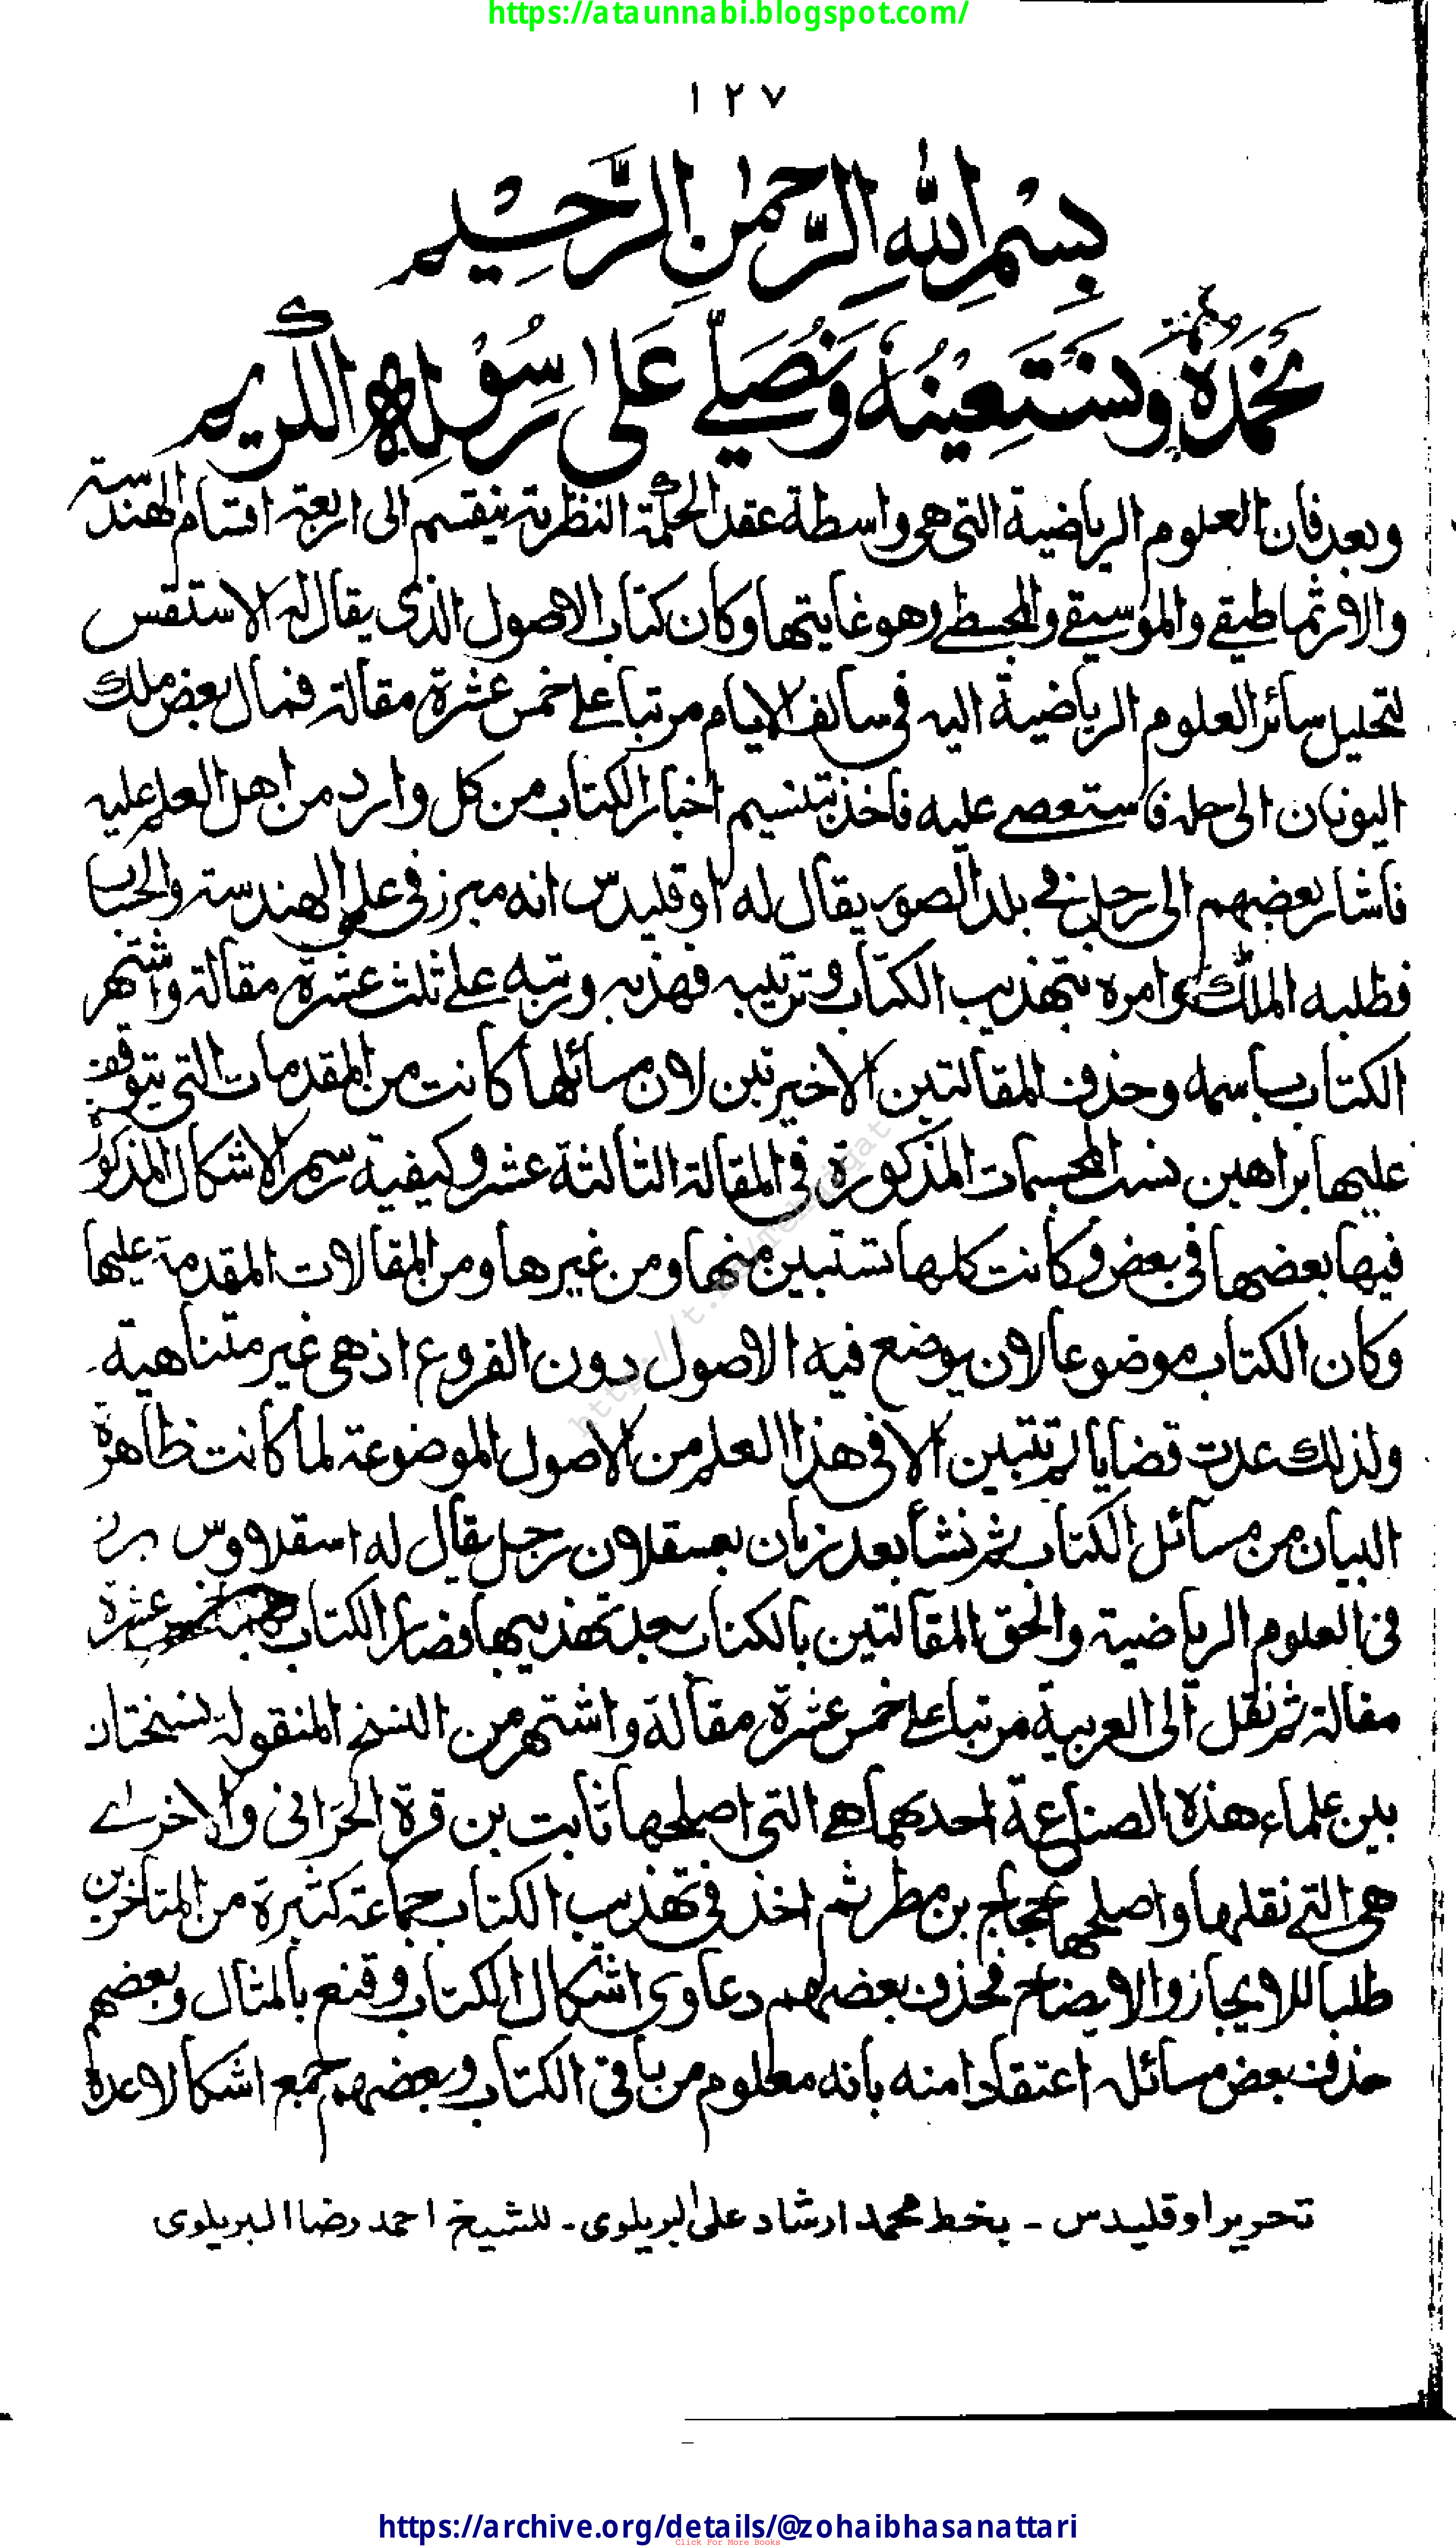 https://ataunnabi.blogspot.com/
١٢٧
بِسْمِ اللهِ الرَّحْمٰنِ الرَّحِيْمِ
نحمدہ ونستعينه ونصلي على رسوله الكريم
وبعد فان العلوم الرياضية التي هي واسطة عقد الحكمة النظرية ينقسم الى اربعة اقسام الهندسة
والارثماطيقے والموسيقے والمجسطے وهو غايتها وكان كتاب الاصول الذى يقال له الاستقس
لتحليل سائر العلوم الرياضية اليه في سالف الايام مرتبا علے خمس عشرة مقالة فمال بعض ملك
اليونان الى حله فاستعصے عليه فاخذ بتنسيم اخبار الكتاب من كل وارد من اهل العلم عليه
فاشار بعضهم الى رجل في بلد الصور يقال له اوقليدس انه مبرز في علم الهندسة والحساب
فطلبه الملك وامره بتهذيب الكتاب وترتيبه فهذبه ورتبه علے ثلث عشرة مقالة واشتهر
الكتاب باسمه وحذف المقالتين الاخيرتين لان مسائلها كانت من المقدمات التي يتوقف
عليها براهين نسب المجسمات المذكورة في المقالة الثالثة عشر وكيفية رسم الاشكال المذكورة
فيها بعضها في بعض وكانت كلها تستبين منها ومن غيرها ومن المقالات المقدمة عليها
وكان الكتاب موضوعا لان يوضع فيه الاصول دون الفروع اذ هي غير متناهية
ولذلك عدت قضايا لم تتبين الا في هذا العلم من الاصول الموضوعة لما كانت ظاهرة
البيان من مسائل الكتاب ثم نشأ بعد زمان بعسقلان رجل يقال له اسقلاوس برز
في العلوم الرياضية والحق المقالتين بالكتاب بعد تهذيبها فصار الكتاب خمس عشرة
مقالة ثم نقل الى العربية مرتبا علے خمس عشرة مقالة واشتهر من النسخ المنقولة نسختان
بين علماء هذه الصناعة احدهما هے التي اصلحها ثابت بن قرة الحرانى والاخرے
هي التے نقلها واصلحها حجاج بن مطر ثم اخذ في تهذيب الكتاب جماعة كثيرة من المتاخرين
طلبا للايجاز والايضاح فحذف بعضهم دعاوى اشكال الكتاب وقنع بالمثال وبعضهم
حذف بعض مسائله اعتقادا منه بانه معلوم من باقي الكتاب وبعضهم جمع اشكالا عدة
تحرير اوقليدس - بخط محمد ارشاد على البريلوى - للشيخ احمد رضا البريلوى
https://archive.org/details/@zohaibhasanattari
Click For More Books